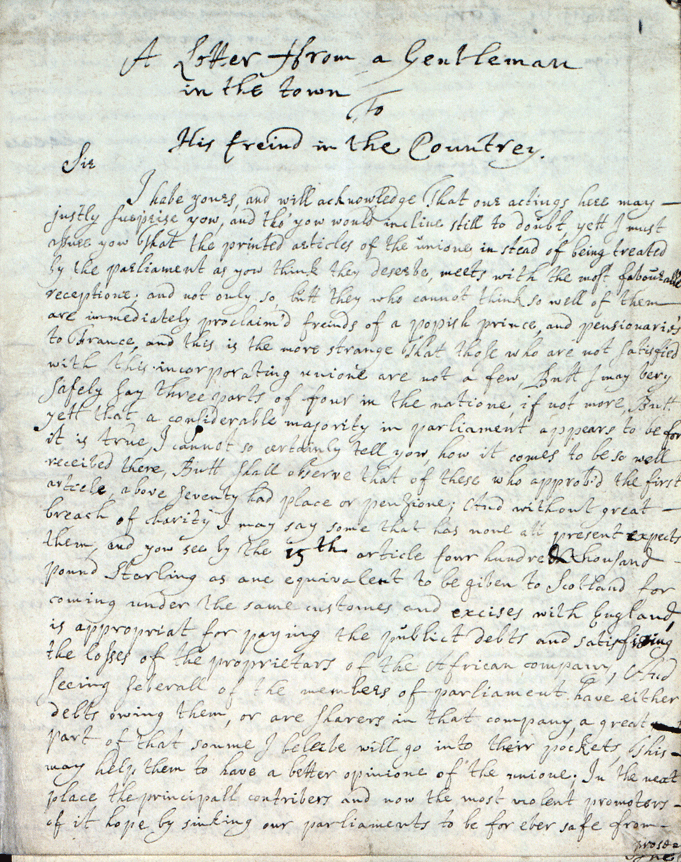 A Letter ffrom a Gentleman
in the town
To
His freind in the Countrey.
Sir
I have yours, and will acknowledge That our actings here may
justly surprise yow, and tho' yow would incline still to doubt, yett I must
assure yow That the printed articles of the unione in stead of being treated
by the parliament as yow think they deserve, meets with the most favourable
receptione; and not only so, butt they who cannot think so well of them
are immediately proclaim'd freinds of a popish prince, and pensionaries
to France, and this is the more strange That those who are not satisfied
with this incorporating unione are not a few, Butt I may very
safely say three parts of four in the natione, if not more, Butt
yett that a considerable majority in parliament appears to be for
it is true, I cannot so certainly tell yow how it comes to be so well
received there, Butt shall observe that of these who approb'd the first
article, above seventy had place or pensione; And without great
breach of charity I may say some that has none att present expects
them, and yow see by the 15th article four hundred thousand
pound Starling as ane equivalent to be given to Scotland for
coming under the same customes and excises with England,
is appropriat for paying the publict debts and satisfieing
the losses of the proprietars of the African company, And
seeing severall of the members of parliament have either
debts owing them, or are sharers in that company, a great
part of that soume I beleive will go into their pockets, this
may help them to have a better opinione of the unione. In the next
place the principall contribers and now the most violent promoters
of it hope by sinking our parliaments to be for ever safe from